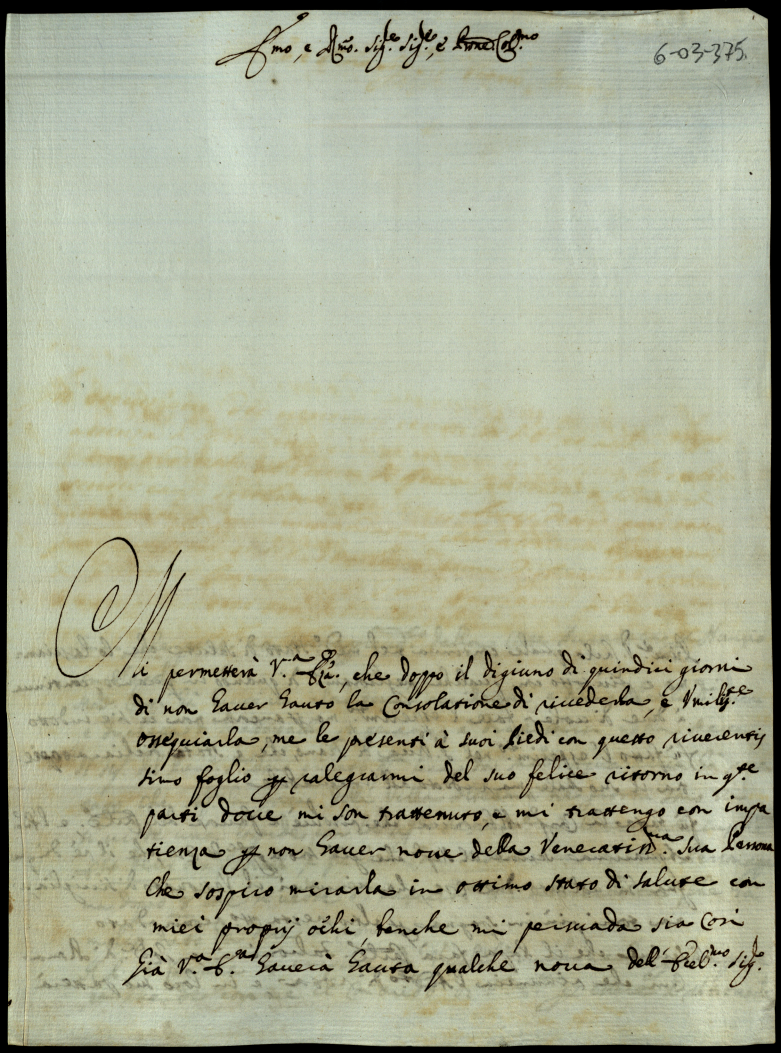 Em̃o, e Rm̃o. Sig.re Sig.re, e Pron̄e Col.mo
6-03-375.
Mi permetterà V.a Em̃a., che doppo il digiuno di quindici giorni
di non haver hauto la Consolatione di rivederla, e Vmilm.te
ossequiarla, me le presenti à suoi Piedi con questo riverentis
simo foglio p ralegrarmi del suo felice ritorno in q.te
parti dove mi son trattenuto, e mi trattengo con impa
tienza p non haver nove della Veneratis.ma sua Persona
Che sospiro mirarla in ottimo stato di salute con
miei proprij ochi, benche mi persuada sia Così
Già V.a E.a haverà hauta qualche nova dell' Ecel.mo Sig.re